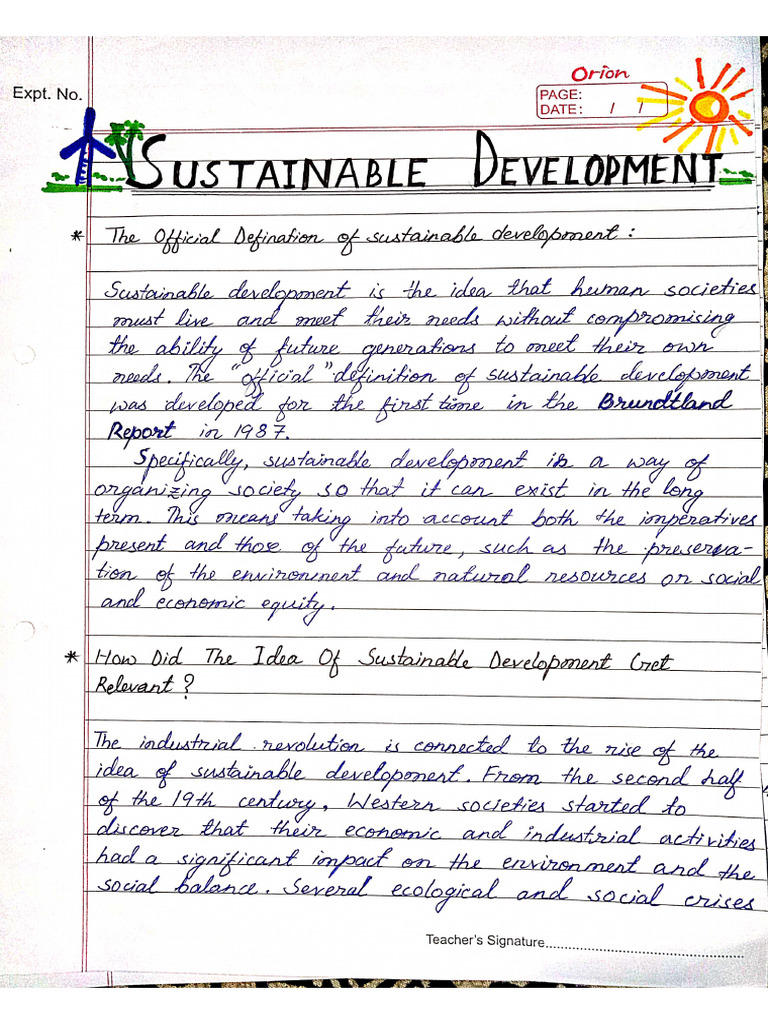 Orion
Expt. No.
PAGE:
DATE: / /
SUSTAINABLE DEVELOPMENT
* The Official Defination of sustainable development :
Sustainable development is the idea that human societies
must live and meet their needs without compromising
the ability of future generations to meet their own
needs. The "official" definition of sustainable development
was developed for the first time in the Brundtland
Report in 1987.
Specifically, sustainable development is a way of
organizing society so that it can exist in the long
term. This means taking into account both the imperatives
present and those of the future, such as the preserva-
tion of the environment and natural resources or social
and economic equity.
* How Did The Idea Of Sustainable Development Get
Relevant ?
The industrial revolution is connected to the rise of the
idea of sustainable development. From the second half
of the 19th century, Western societies started to
discover that their economic and industrial activities
had a significant impact on the environment and the
social balance. Several ecological and social crises
Teacher's Signature